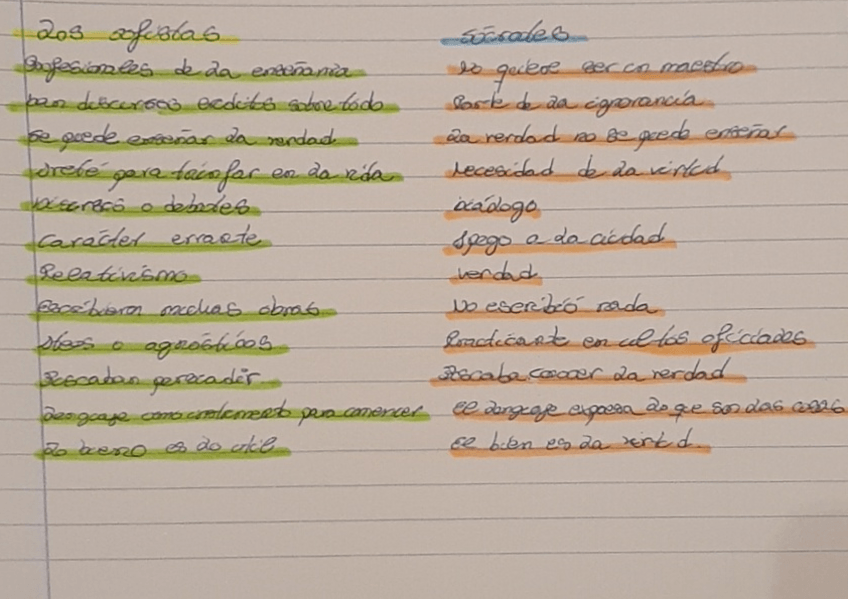 Los sofistas    Sócrates
Profesionales de la enseñanza    No quiere ser un maestro
Dan discursos eruditos sobre todo    Parte de la ignorancia
Se puede enseñar la verdad    La verdad no se puede enseñar
Areté para triunfar en la vida    Necesidad de la virtud
Discursos o debates    Diálogo
Carácter errante    Apego a la ciudad
Relativismo    Verdad
Escribieron muchas obras    No escribió nada
Ateos o agnósticos    Practicante en cultos oficiales
Buscaban persuadir    Buscaba conocer la verdad
Lenguaje como instrumento para convencer    El lenguaje expresa lo que son las cosas
Lo bueno es lo útil    El bien es la virtud